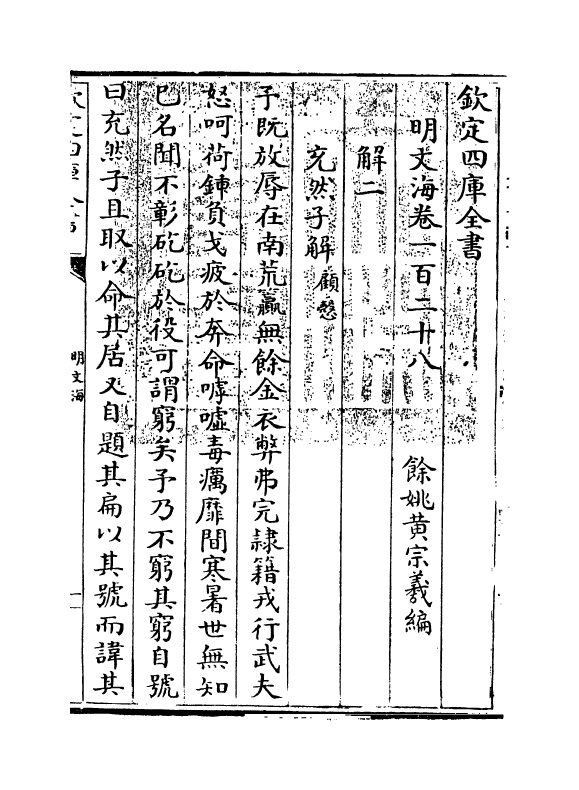 欽定四庫全書
明文海卷一百二十八　餘姚黄宗羲編
解二
充然子解顧慤
予既放辱在南荒羸無餘金衣弊弗完隷籍戎行武夫
怒呵荷鍤負戈疲於奔命嘑嘘毒癘靡間寒暑世無知
巳名聞不彰矻矻於役可謂窮矣予乃不窮其窮自號
曰充然子且取以命其居又自題其扁以其號而諱其
欽定四庫全書
明文海
一